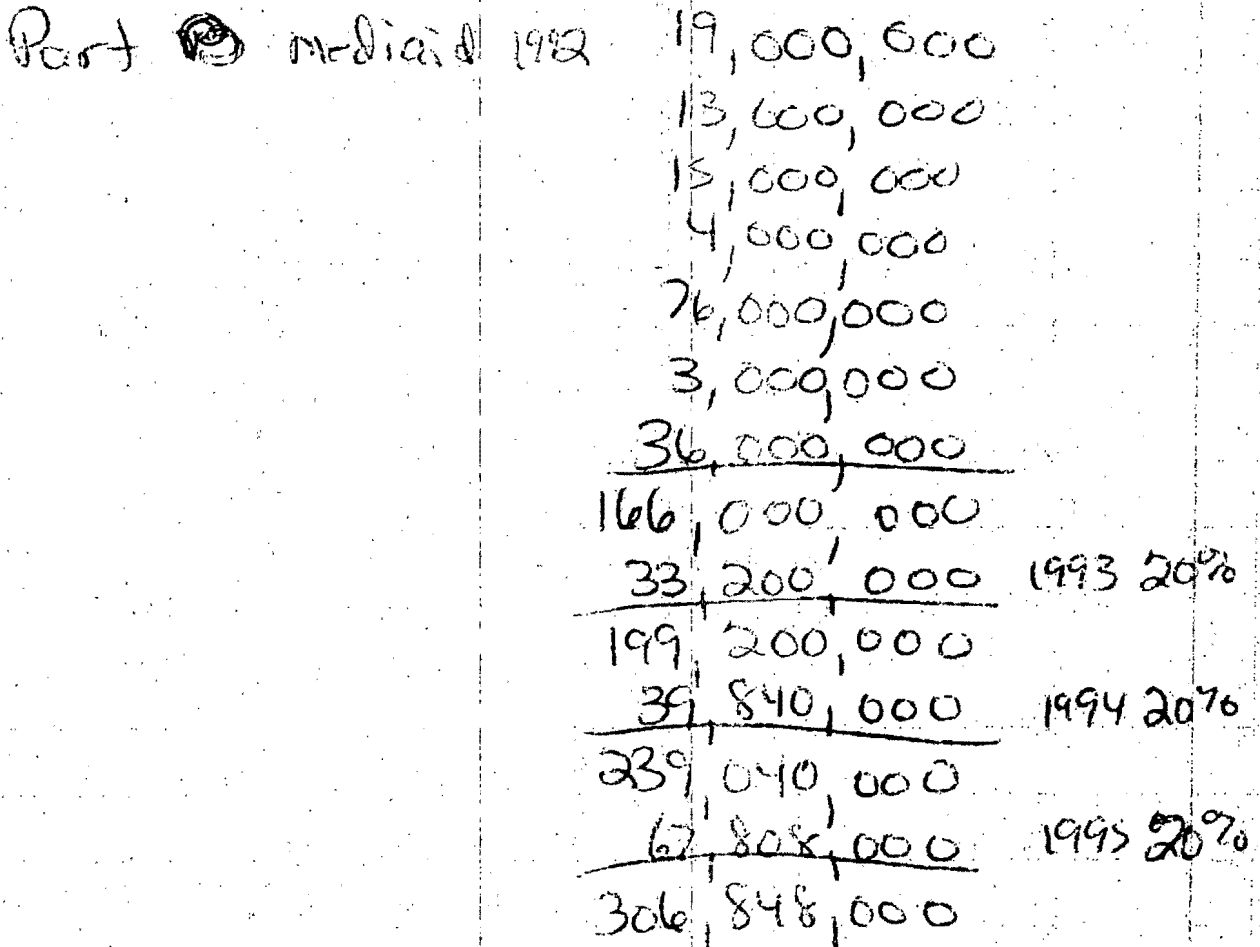 Part medicaid 1992 19,000,000
13,000,000
15,000,000
4,000,000
76,000,000
3,000,000
36,000,000
166,000,000
33,200,000 1993 20%
199,200,000
39,840,000 1994 20%
239,040,000
67,808,000 1995 20%
306,848,000